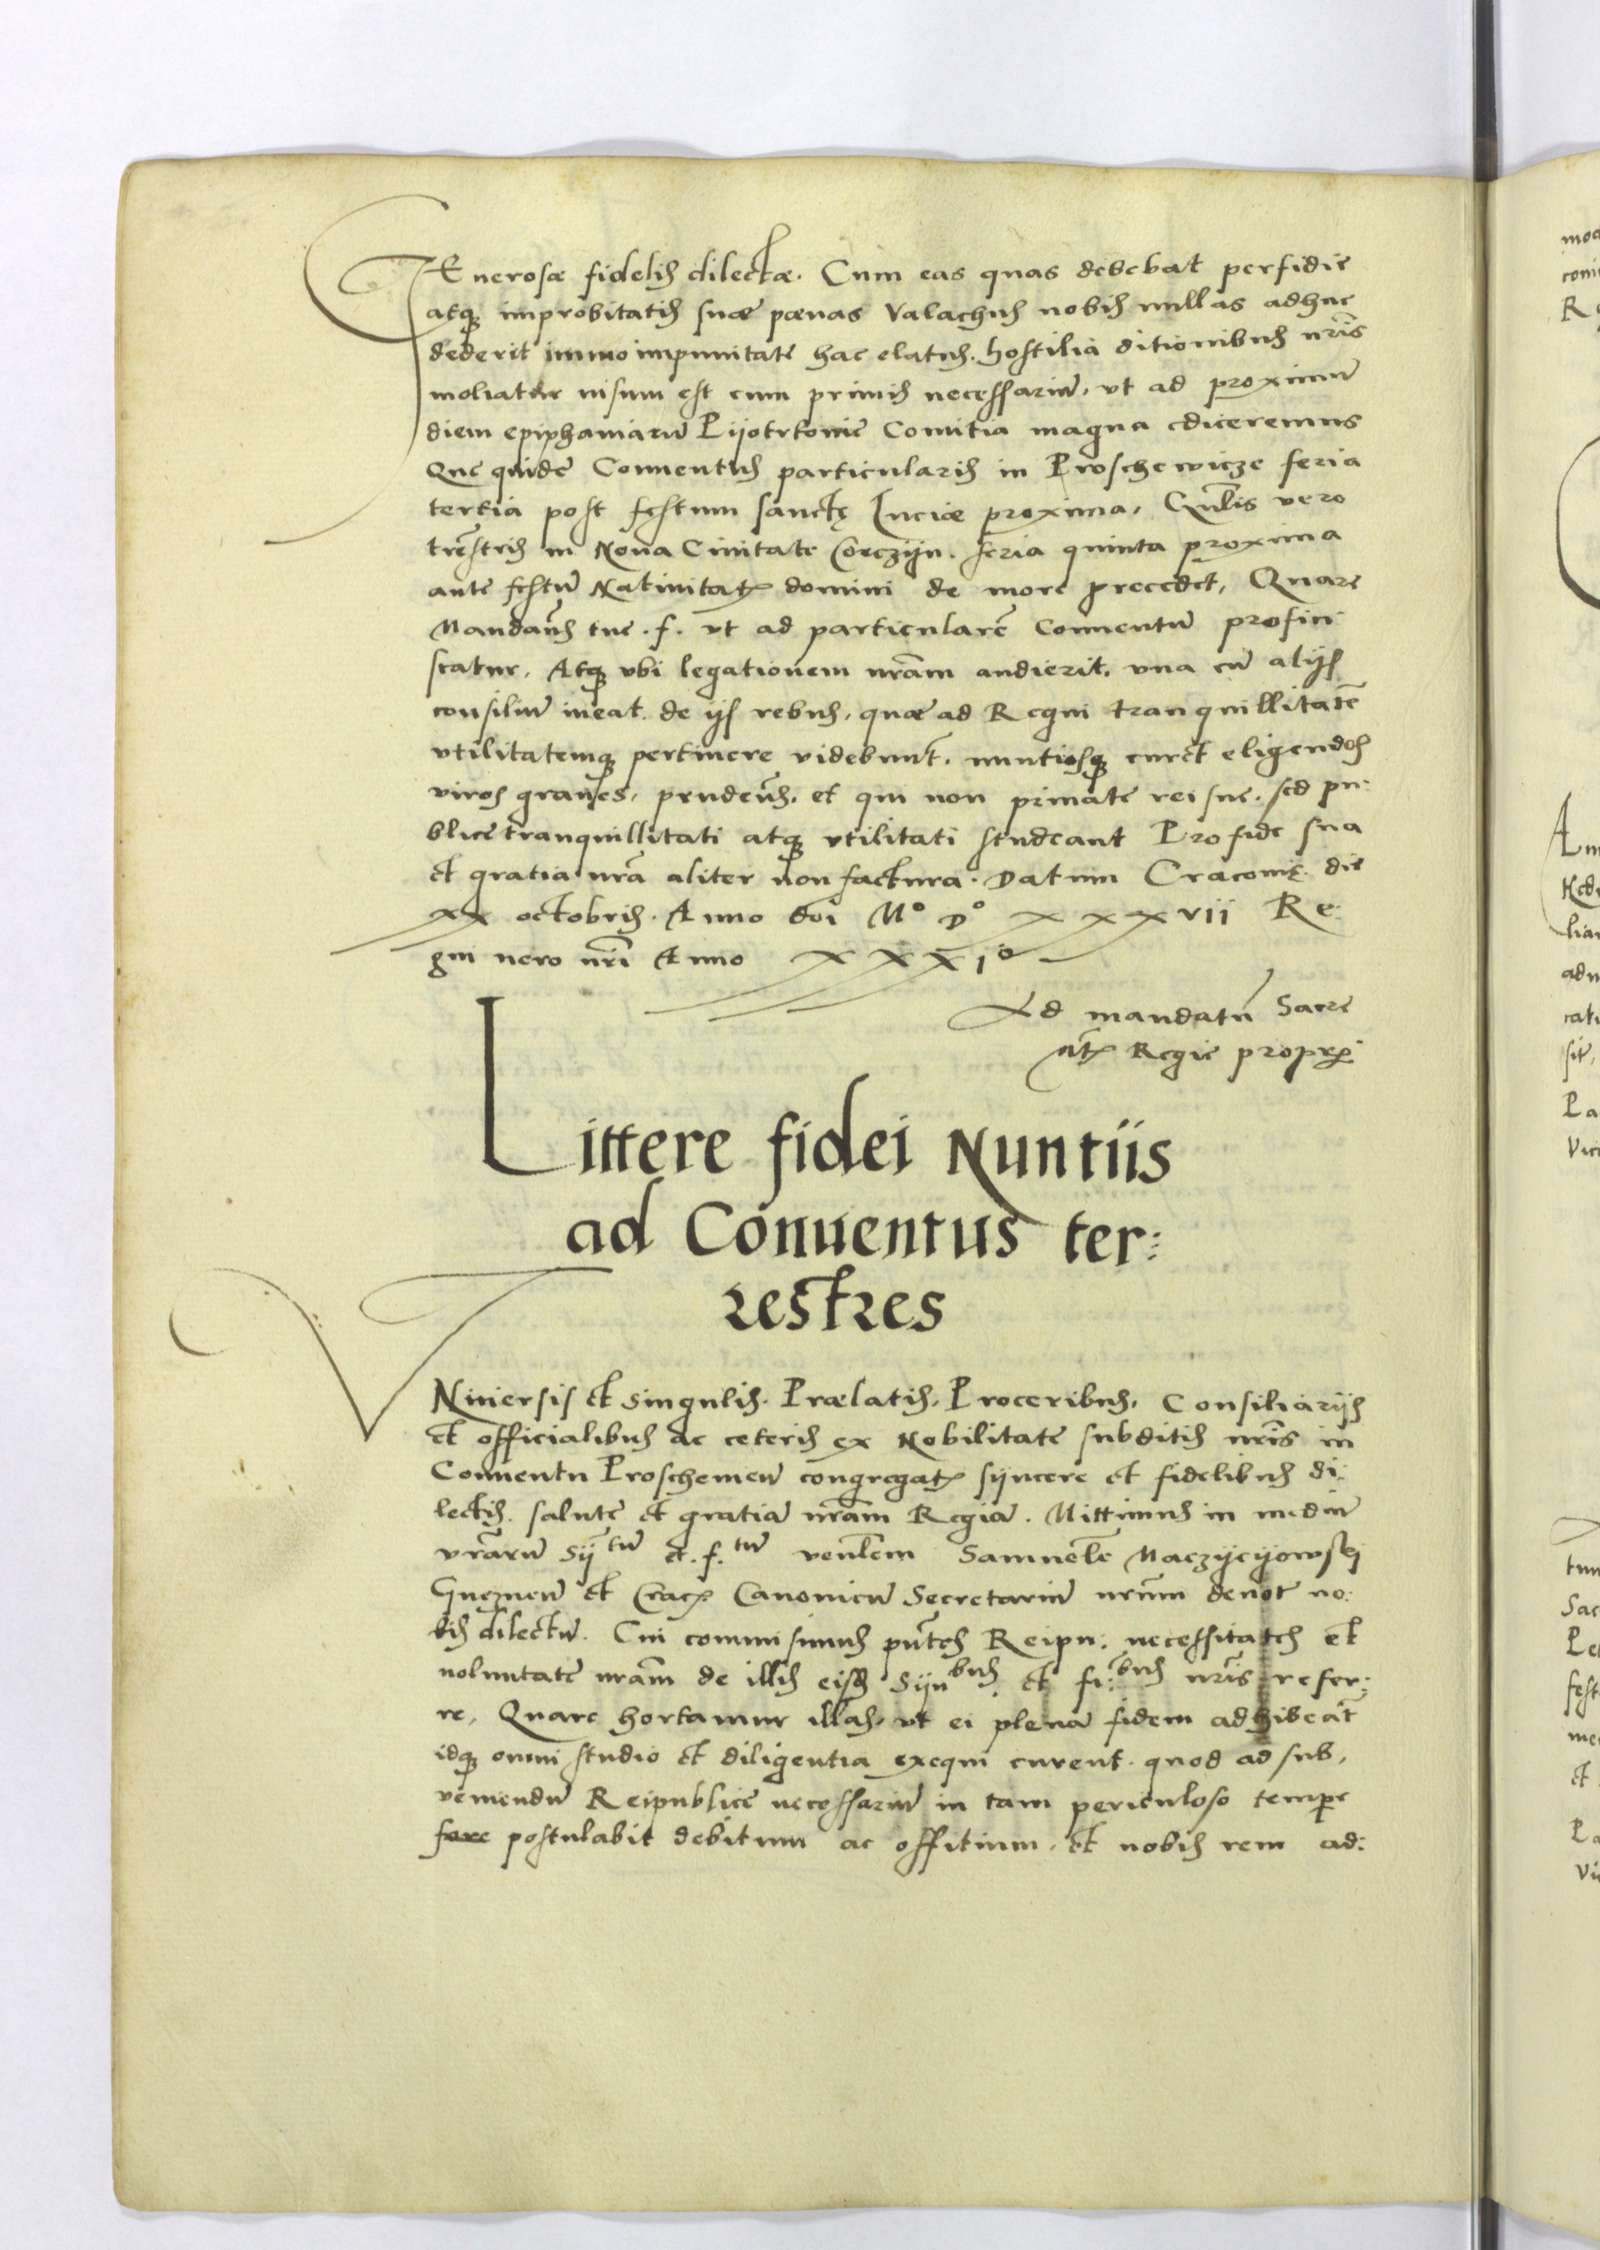 GEnerosæ fidelis dilectæ. Cum eas quas debebat perfidie
atq improbitatis suæ pœnas Valachus nobis nullas adhuc
dederit immo impunitate hac elatus. hostilia ditionibus nr̃is
moliatur uisum est cum primis necessariũ, ut ad proximũ
diem epiphaniarũ Pijotrkouie Comitia magna ediceremus
Que quidẽ Conuentus particularis in Proschewicze feria
tertia post festum sanctę Luciæ proxima, Gñlis vero
tr̃estris in Noua Ciuitate Corczijn. feria quinta proxima
ante festũ Natiuitatꝭ domini de more precedet, Quare
Mandam̃s tue .f. vt ad particularẽ Conuentũ profici
scatur, Atq vbi legationem nrãm audierit, vna cũ alijs
consiliũ ineat. de ijs rebus, quæ ad Regni tranquillitatẽ
vtilitatemq pertinere videbunt̃, nuntiosq curet eligendos
viros graues, prudeñs, et qui non priuatẽ rei sue, sed pu:
blice tranquillitati atq vtilitati studeant Pro fide sua
et gratia nrã aliter non factura. Datum Cracouię. die
xx octobris. Anno doi M° D° x x x vii Re:
gni uero nr̃i Anno x x x i°
Ad mandatũ Sacre
Mtꝭ Regie propr̃
Littere fidei Nuntiis
ad Conuentus ter:
restres
VNiuersis et singulis. Prælatis, Proceribus, Consiliarijs
et officialibus ac ceteris ex Nobilitate subditis nr̃is in
Conuentu Proscheuieñ congregatꝭ sijncere et fidelibus di:
lectis. salutẽ et gratiã nrãm Regiã. Mittimus in mediũ
vrãrũ Sij tũ et .f. tũ veñlem Samuelẽ Maczijeijowskj
Gnezneñ et Cracꝭ Canonicũ Secretariũ nrũm deuotẽ no:
bis dilectũ. Cui commisimus pñtes Reipu: necessitates et
uoluntatẽ nrãm de illis eisd Sijn bus et fi: bus nr̃is refer:
re, Quare hortamur illas, vt ei plenã fidem adhibeãt
idq omni studio et diligentia exequi curent. quod ad sub,
veniendũ Reipublice necessariũ in tam periculoso tempꝛe
fore postulabit debitum ac offitium, et nobis rem ad: